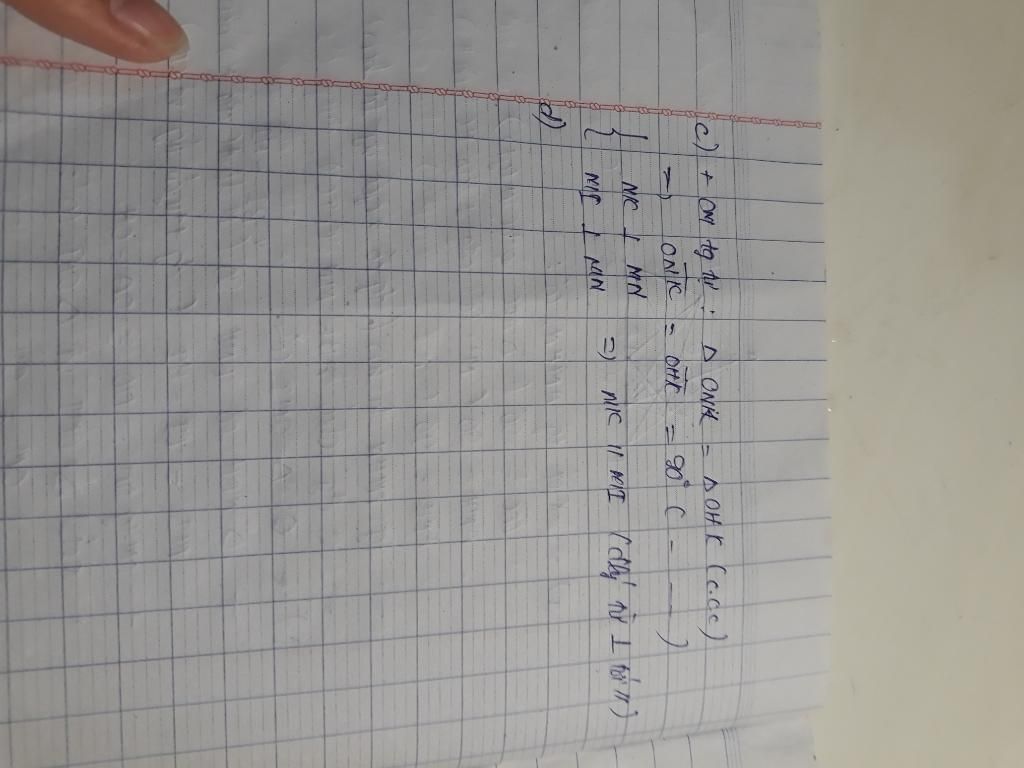 c) + CM tg tự: Δ ONK = Δ OHK (c.c.c)
=) ONK = OHK = 90° ( - — )
{ NK ⊥ MN
MI ⊥ MN =) NK // MI (đlý từ ⊥ //)
d)